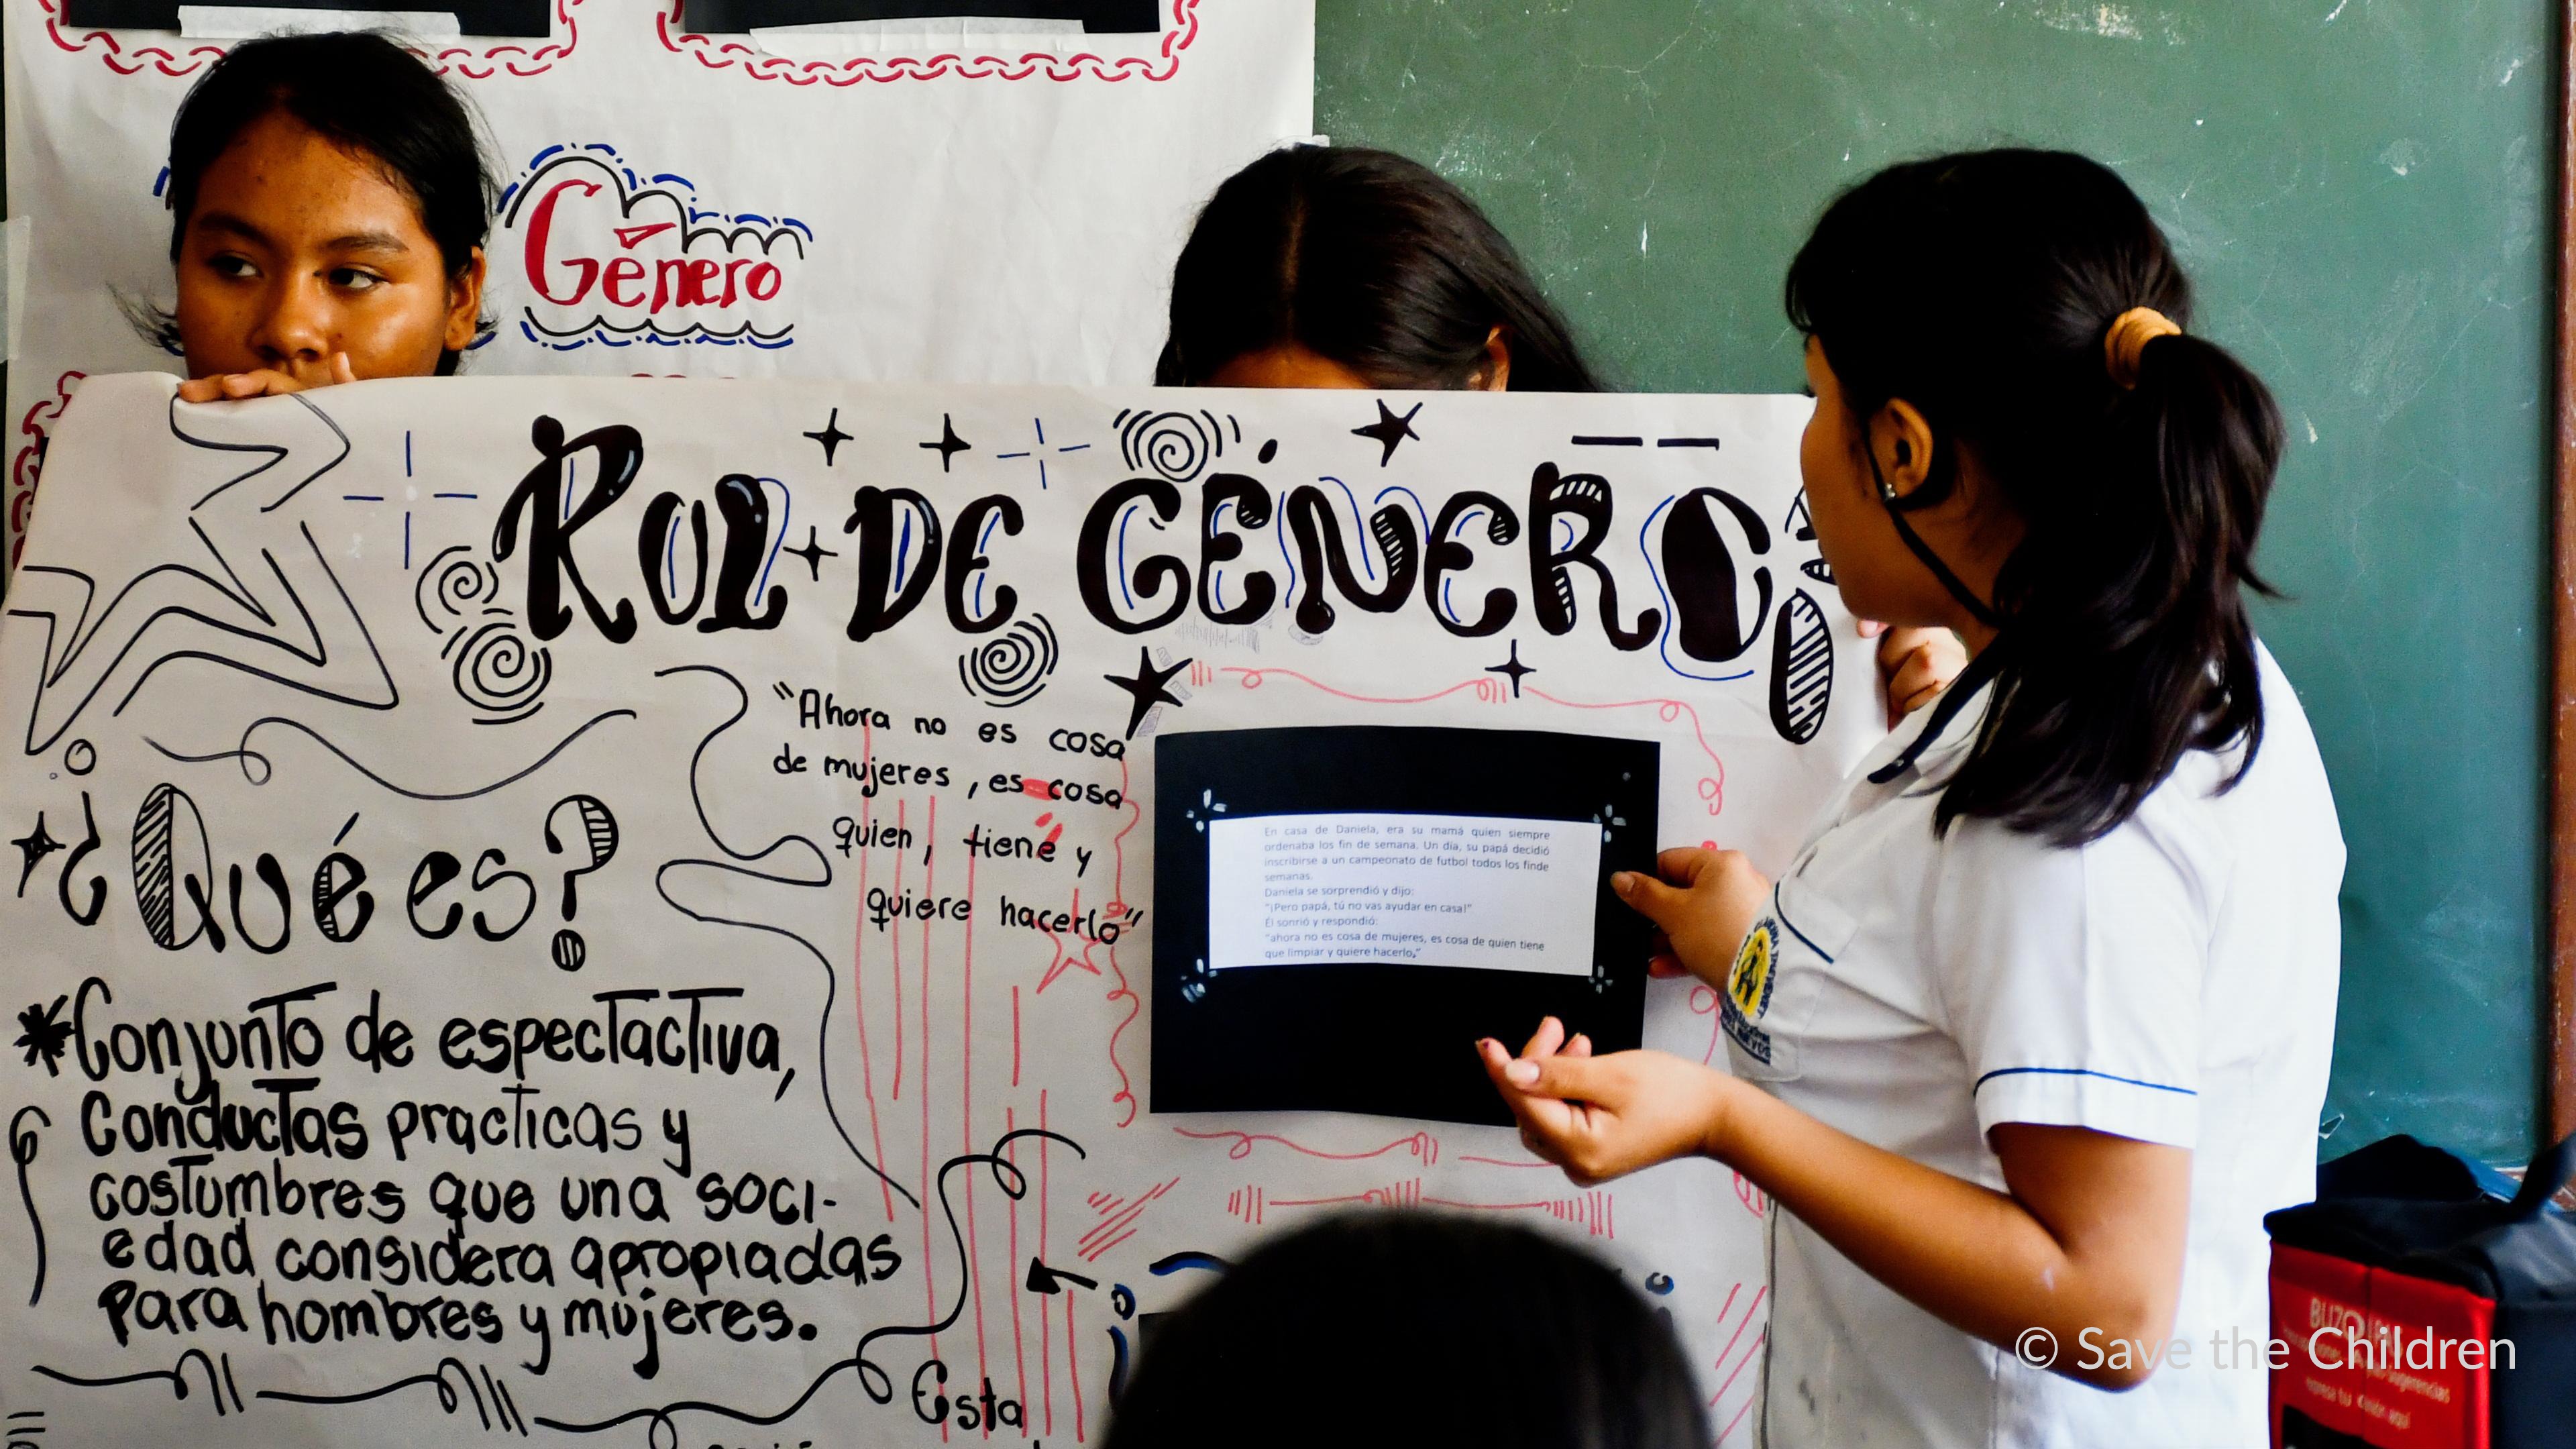 Género
ROL DE GÉNERO
"Ahora no es cosa
de mujeres, es cosa
quien, tiene y
quiere hacerlo"
¿Qué es?
Conjunto de espectactiva,
Conductas practicas y
costumbres que una soci-
edad considera apropiadas
para hombres y mujeres.
En casa de Daniela, era su mamá quien siempre
ordenaba los fin de semana. Un día, su papá decidió
inscribirse a un campeonato de futbol todos los finde
semanas.
Daniela se sorprendió y dijo:
"¡Pero papá, tú no vas ayudar en casa!"
Él sonrió y respondió:
"ahora no es cosa de mujeres, es cosa de quien tiene
que limpiar y quiere hacerlo."
Esta
© Save the Children